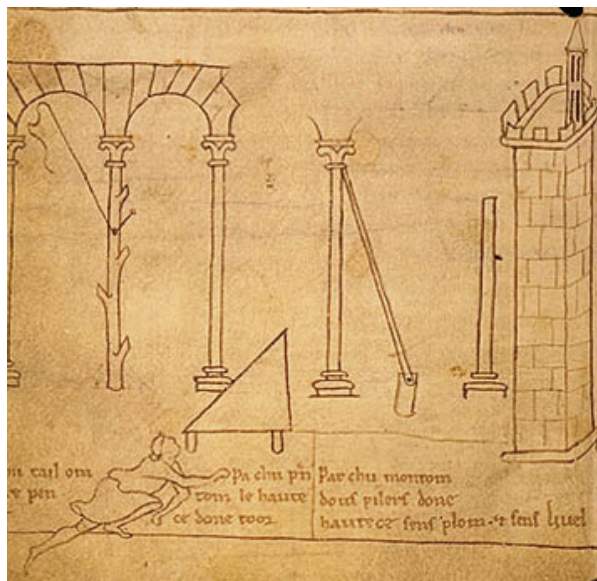 tail om
pen
Pa chu pn
tom le haute
ce done toor
Par chu montom
dous pilers done
hautece sens plom · ⁊ sens liuel